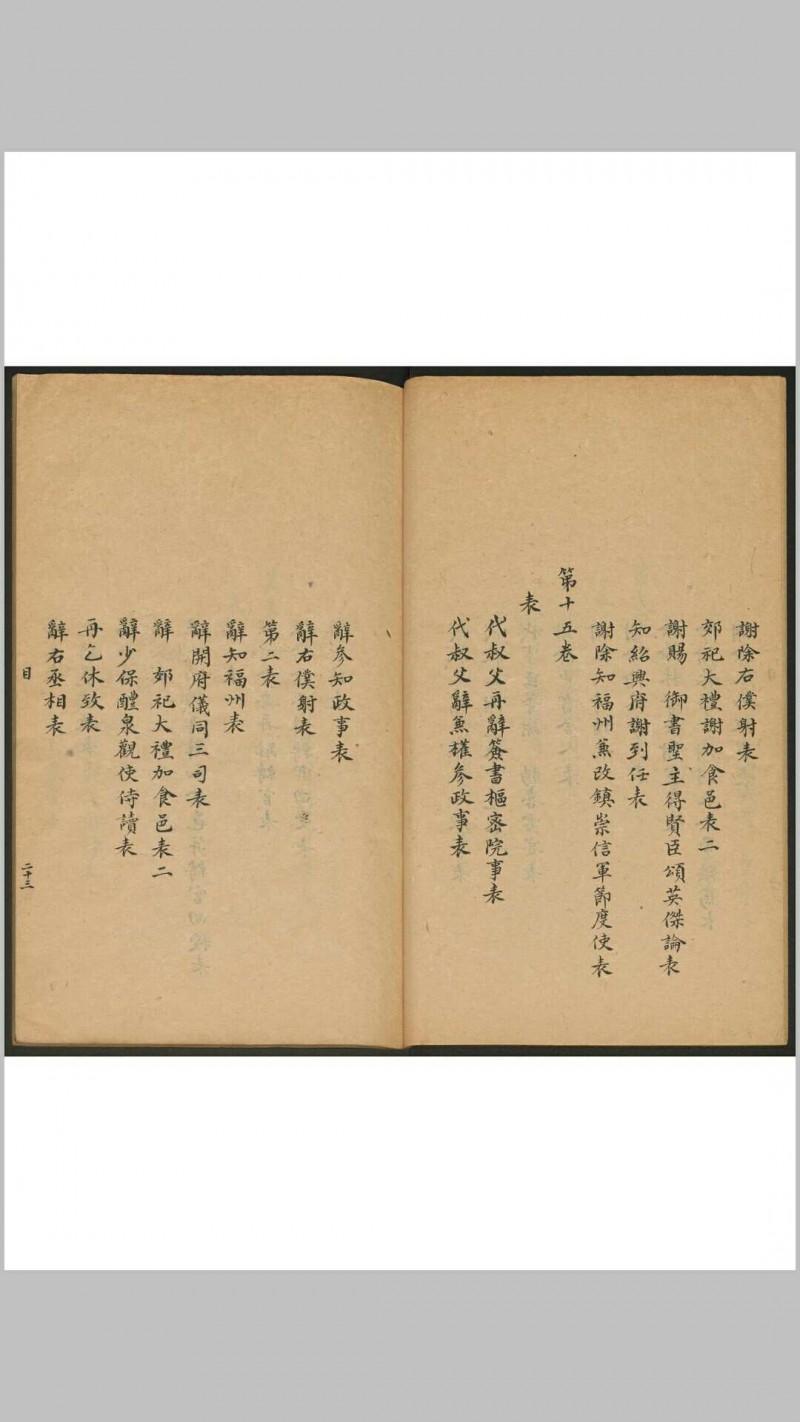 謝除右僕射表
郊祀大禮謝加食邑表二
謝賜 御書聖主得賢臣頌英傑論表
知紹興府謝到任表
謝除知福州兼改鎮崇信軍節度使表
第十五卷
表
代叔父再辭簽書樞密院事表
代叔父辭兼權參政事表
辭參知政事表
辭右僕射表
第二表
辭知福州表
辭開府儀同三司表
辭 郊祀大禮加食邑表二
辭少保醴泉觀使侍讀表
再乞休致表
辭右丞相表
目
二十三